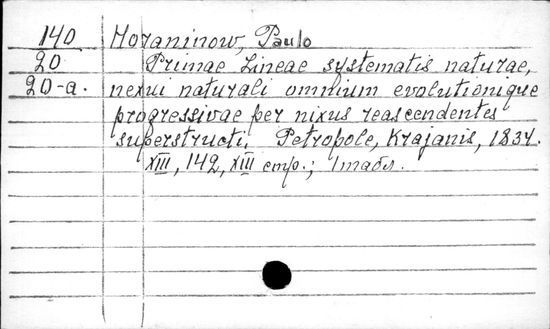 140 Horaninow, Paulo
20 Primae Lineae systematis naturae,
20-a. nexui naturali omnium evolutionique
progressivae per nixus reascendentes
superstructi, Petropole, Krajanis, 1834.
XIII, 142, XIII стр.; 1 табл.